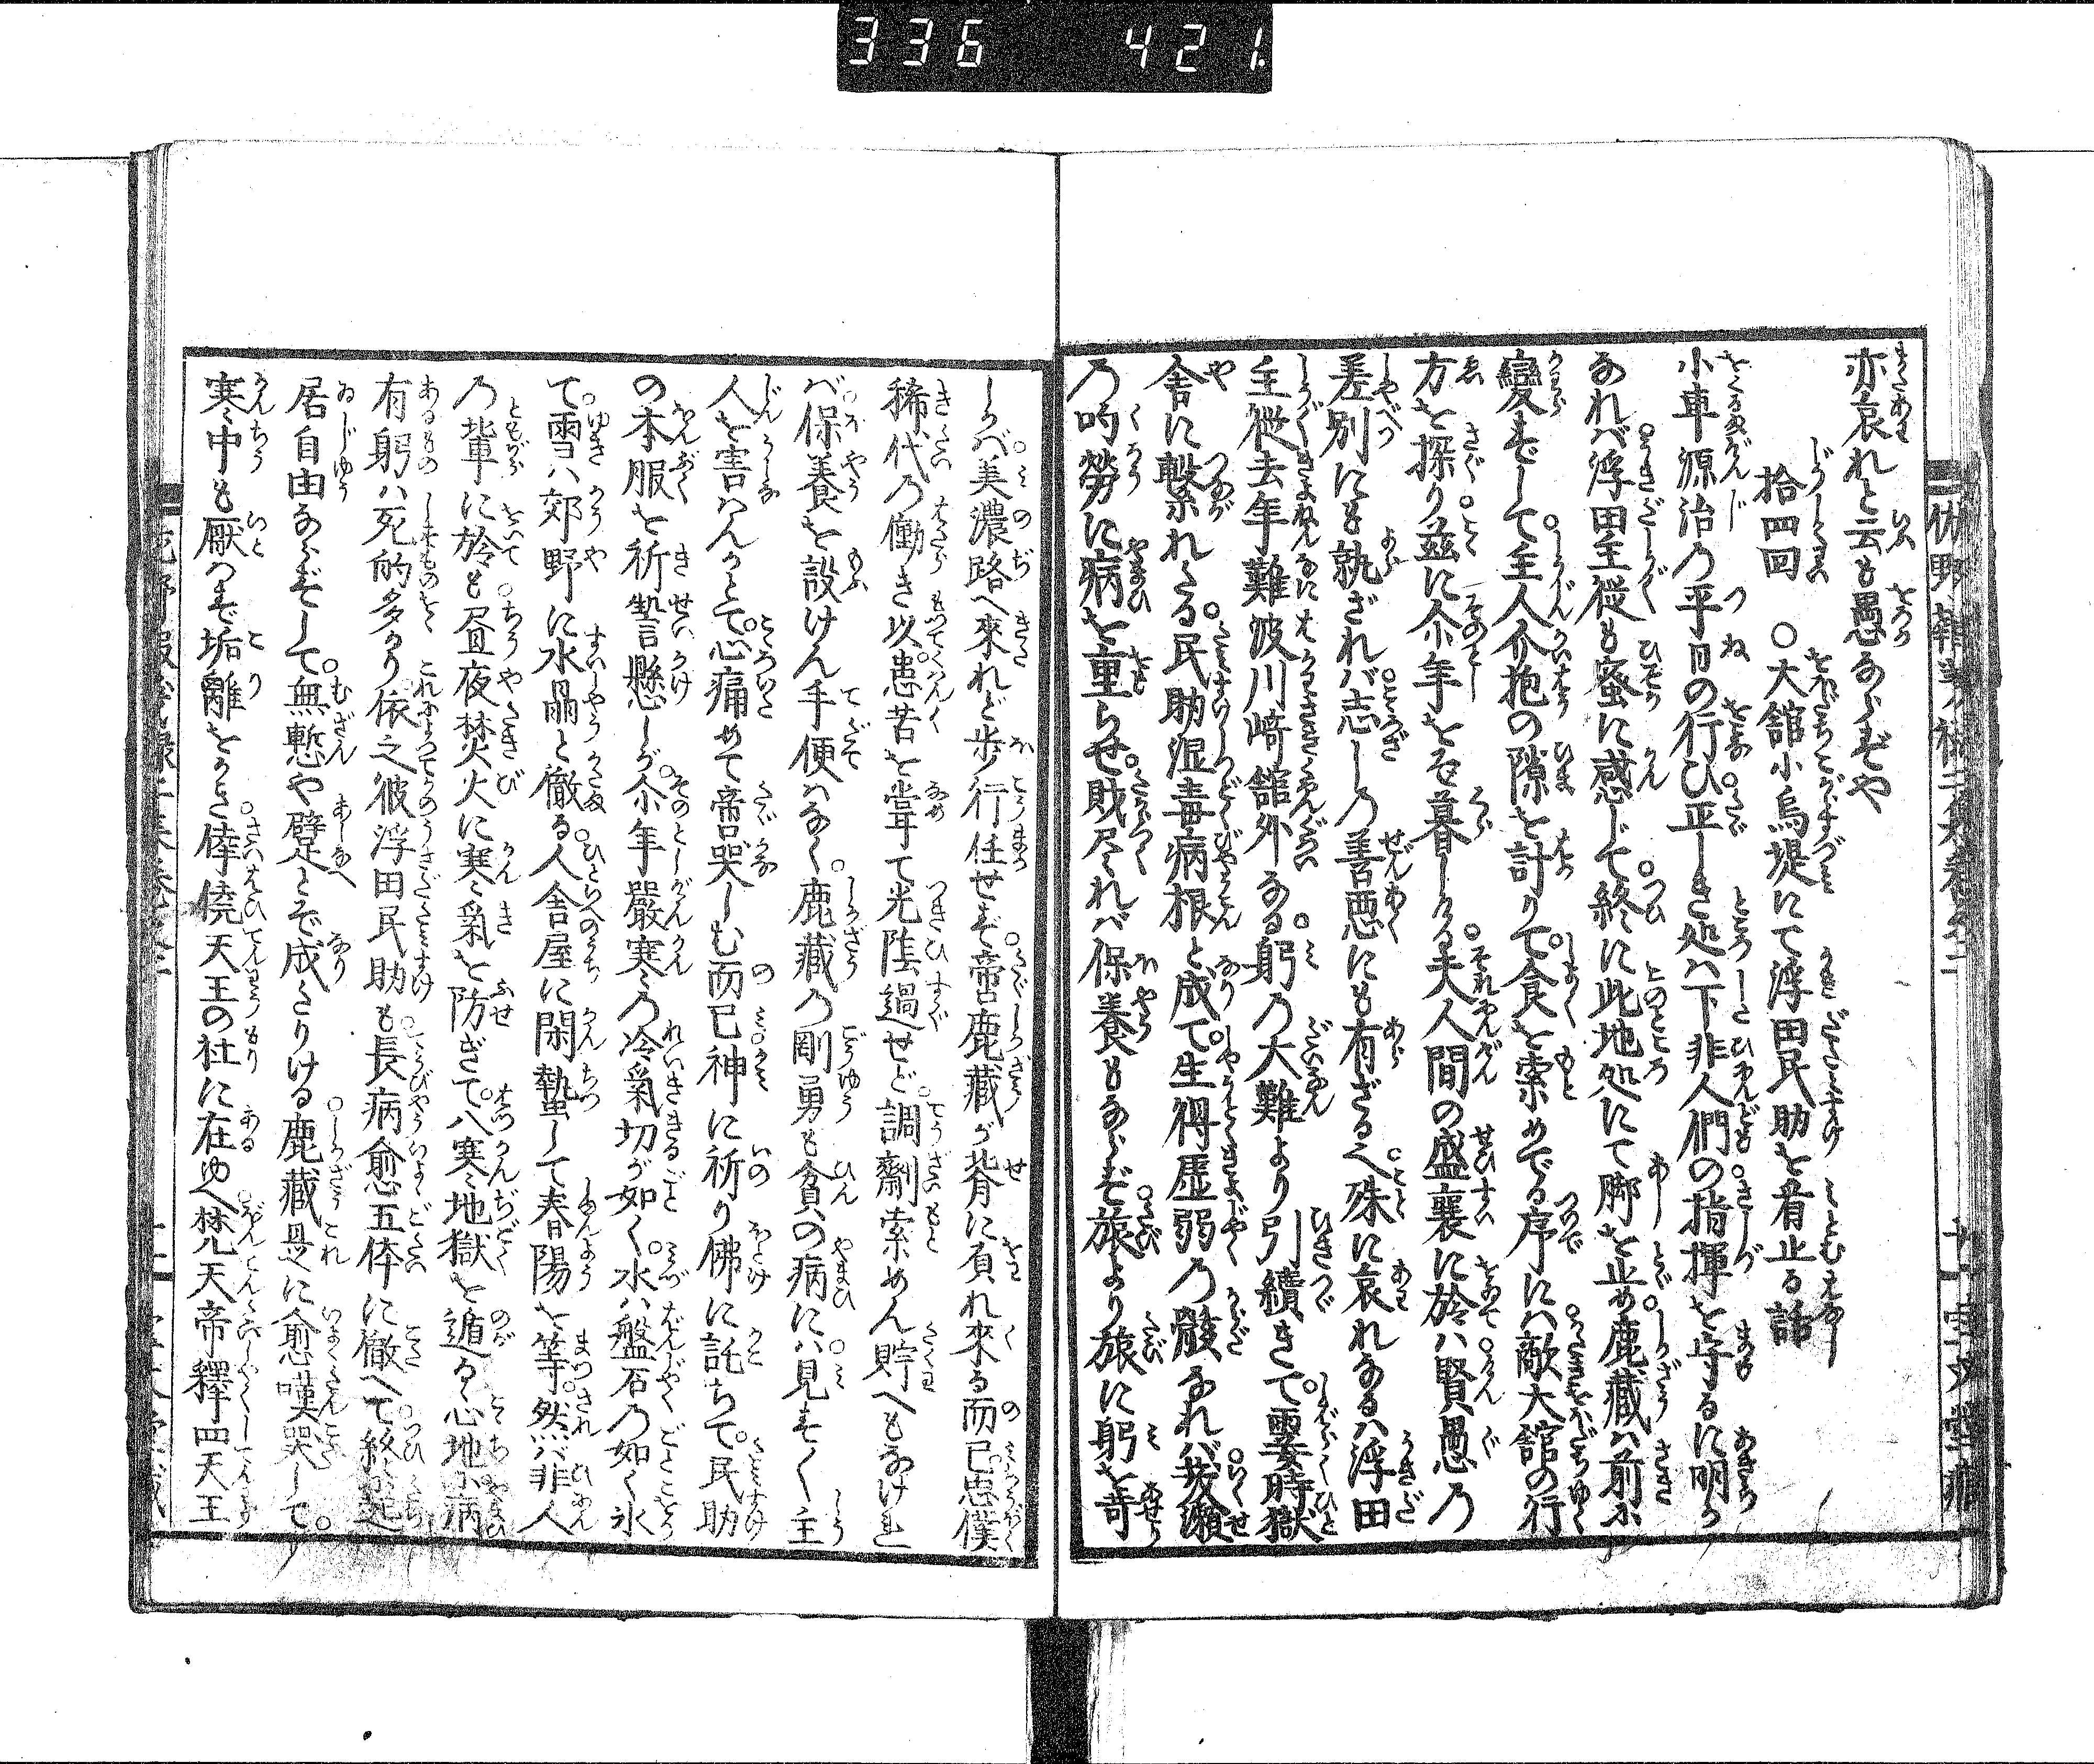 336 421
亦哀れと云も愚あらずや
拾四回 ○大舘小烏堤にて浮田民助を看止る話
小車源治乃平日の行ひ正しき処ハ下非人們の指揮を守るに明ら
あれバ浮田主従も蜜に感じて終に此地処にて脚を止め鹿藏ハ前に
變ずして主人介抱の隙を計りて食を索めでる序にハ敵大舘の行
方を探り茲に尒年をぞ暮しける夫人間の盛衰に於ハ賢愚乃
差別にも執ざれバ志しの善悪にも有ざるべ殊に哀れなるハ浮田
主従去年難波川崎舘外なる躬乃大難より引續きて霎時獄
舎に繋れたる民助湿毒病根と成て生得虚弱乃骸なれバ苃瀬
乃呴勞に病を重らせ財尽れバ保養もならず旅より旅に躬を苛
しかバ美濃路へ來れど歩行任せず啻鹿藏が背に負れ來る而已忠僕
稀代乃働き以患苦を甞て光陰過せど調劑索めん貯へもなけれ
バ保養を設けん手便ハなく鹿藏乃剛勇も貧の病にハ見すく主
人を害ハんかとて心痛めて啻哭しむ而已神に祈り佛に託ちて民助
の本服を祈誓懸しが尒年嚴寒乃冷氣切が如く水ハ盤石乃如く氷
て雪ハ郊野に水晶と徹る人舎屋に閑蟄して春陽を等然バ非人
乃輩に於も昼夜焚火に寒氣を防ぎて八寒地獄を遁るゝ心地に病
有躬ハ死的多かり依之彼浮田民助も長病愈五体に徹へて終に起
居自由ならずして無慙や躄とぞ成たりける鹿藏是に愈嘆哭して
寒中も厭ハず垢離をかき倖僥天王の社に在ゆへ梵天帝釋四天王